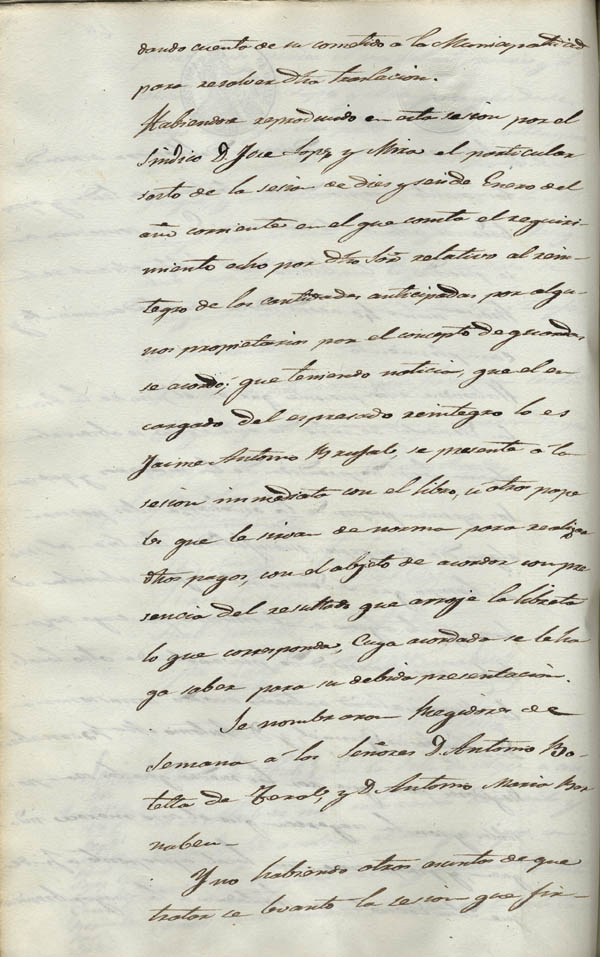 dando cuenta de su cometido a la Municipalidad
para resolver dha traslacion.
Habiendose reproducido en esta sesion por el
Sindico D. Jose Lopez y Mira el particular
sesto de la sesion de dies y seis de Enero del
año corriente en el que consta el requiri-
miento echo por dho Sor. relativo al rein-
tegro de las cantidades anticipadas por algu-
nos propietarios por el concepto de guardas
se acordó; que teniendo noticia, que el en
cargado del espresado reintegro lo es
Jaime Antonio Brufal, se presente á la
sesion immediata con el libro, u otros pape
les que le sirvan de norma para realizar
dhos pagos, con el objeto de acordar con pre
sencia del resultado que arroje la libreta
lo que corresponda, Cuya acordada se le ha
ga saber para su debida presentacion.
Se nombraron Regidores de
Semana á los Señores D. Antonio Bo-
tella de Terol, y D. Antonio Maria Ber
nabeu-
Y no habiendo otros asuntos de que
tratar se levantó la sesion que fir-